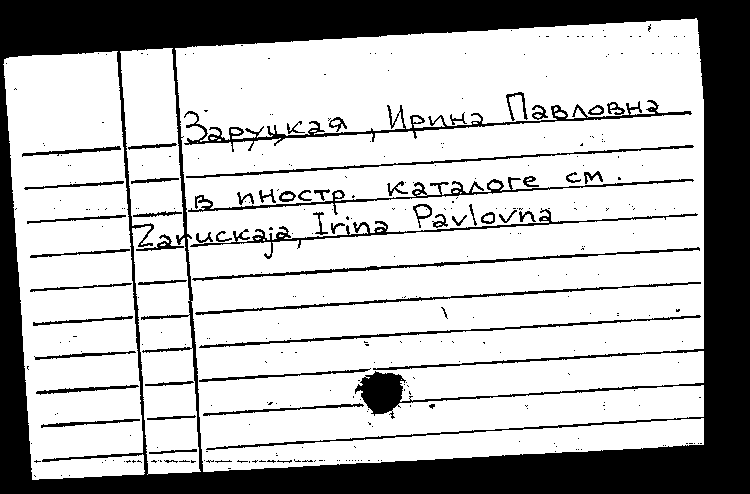 Заруцкая, Ирина Павловна
в иностр. каталоге см.
Zaruckaja, Irina Pavlovna